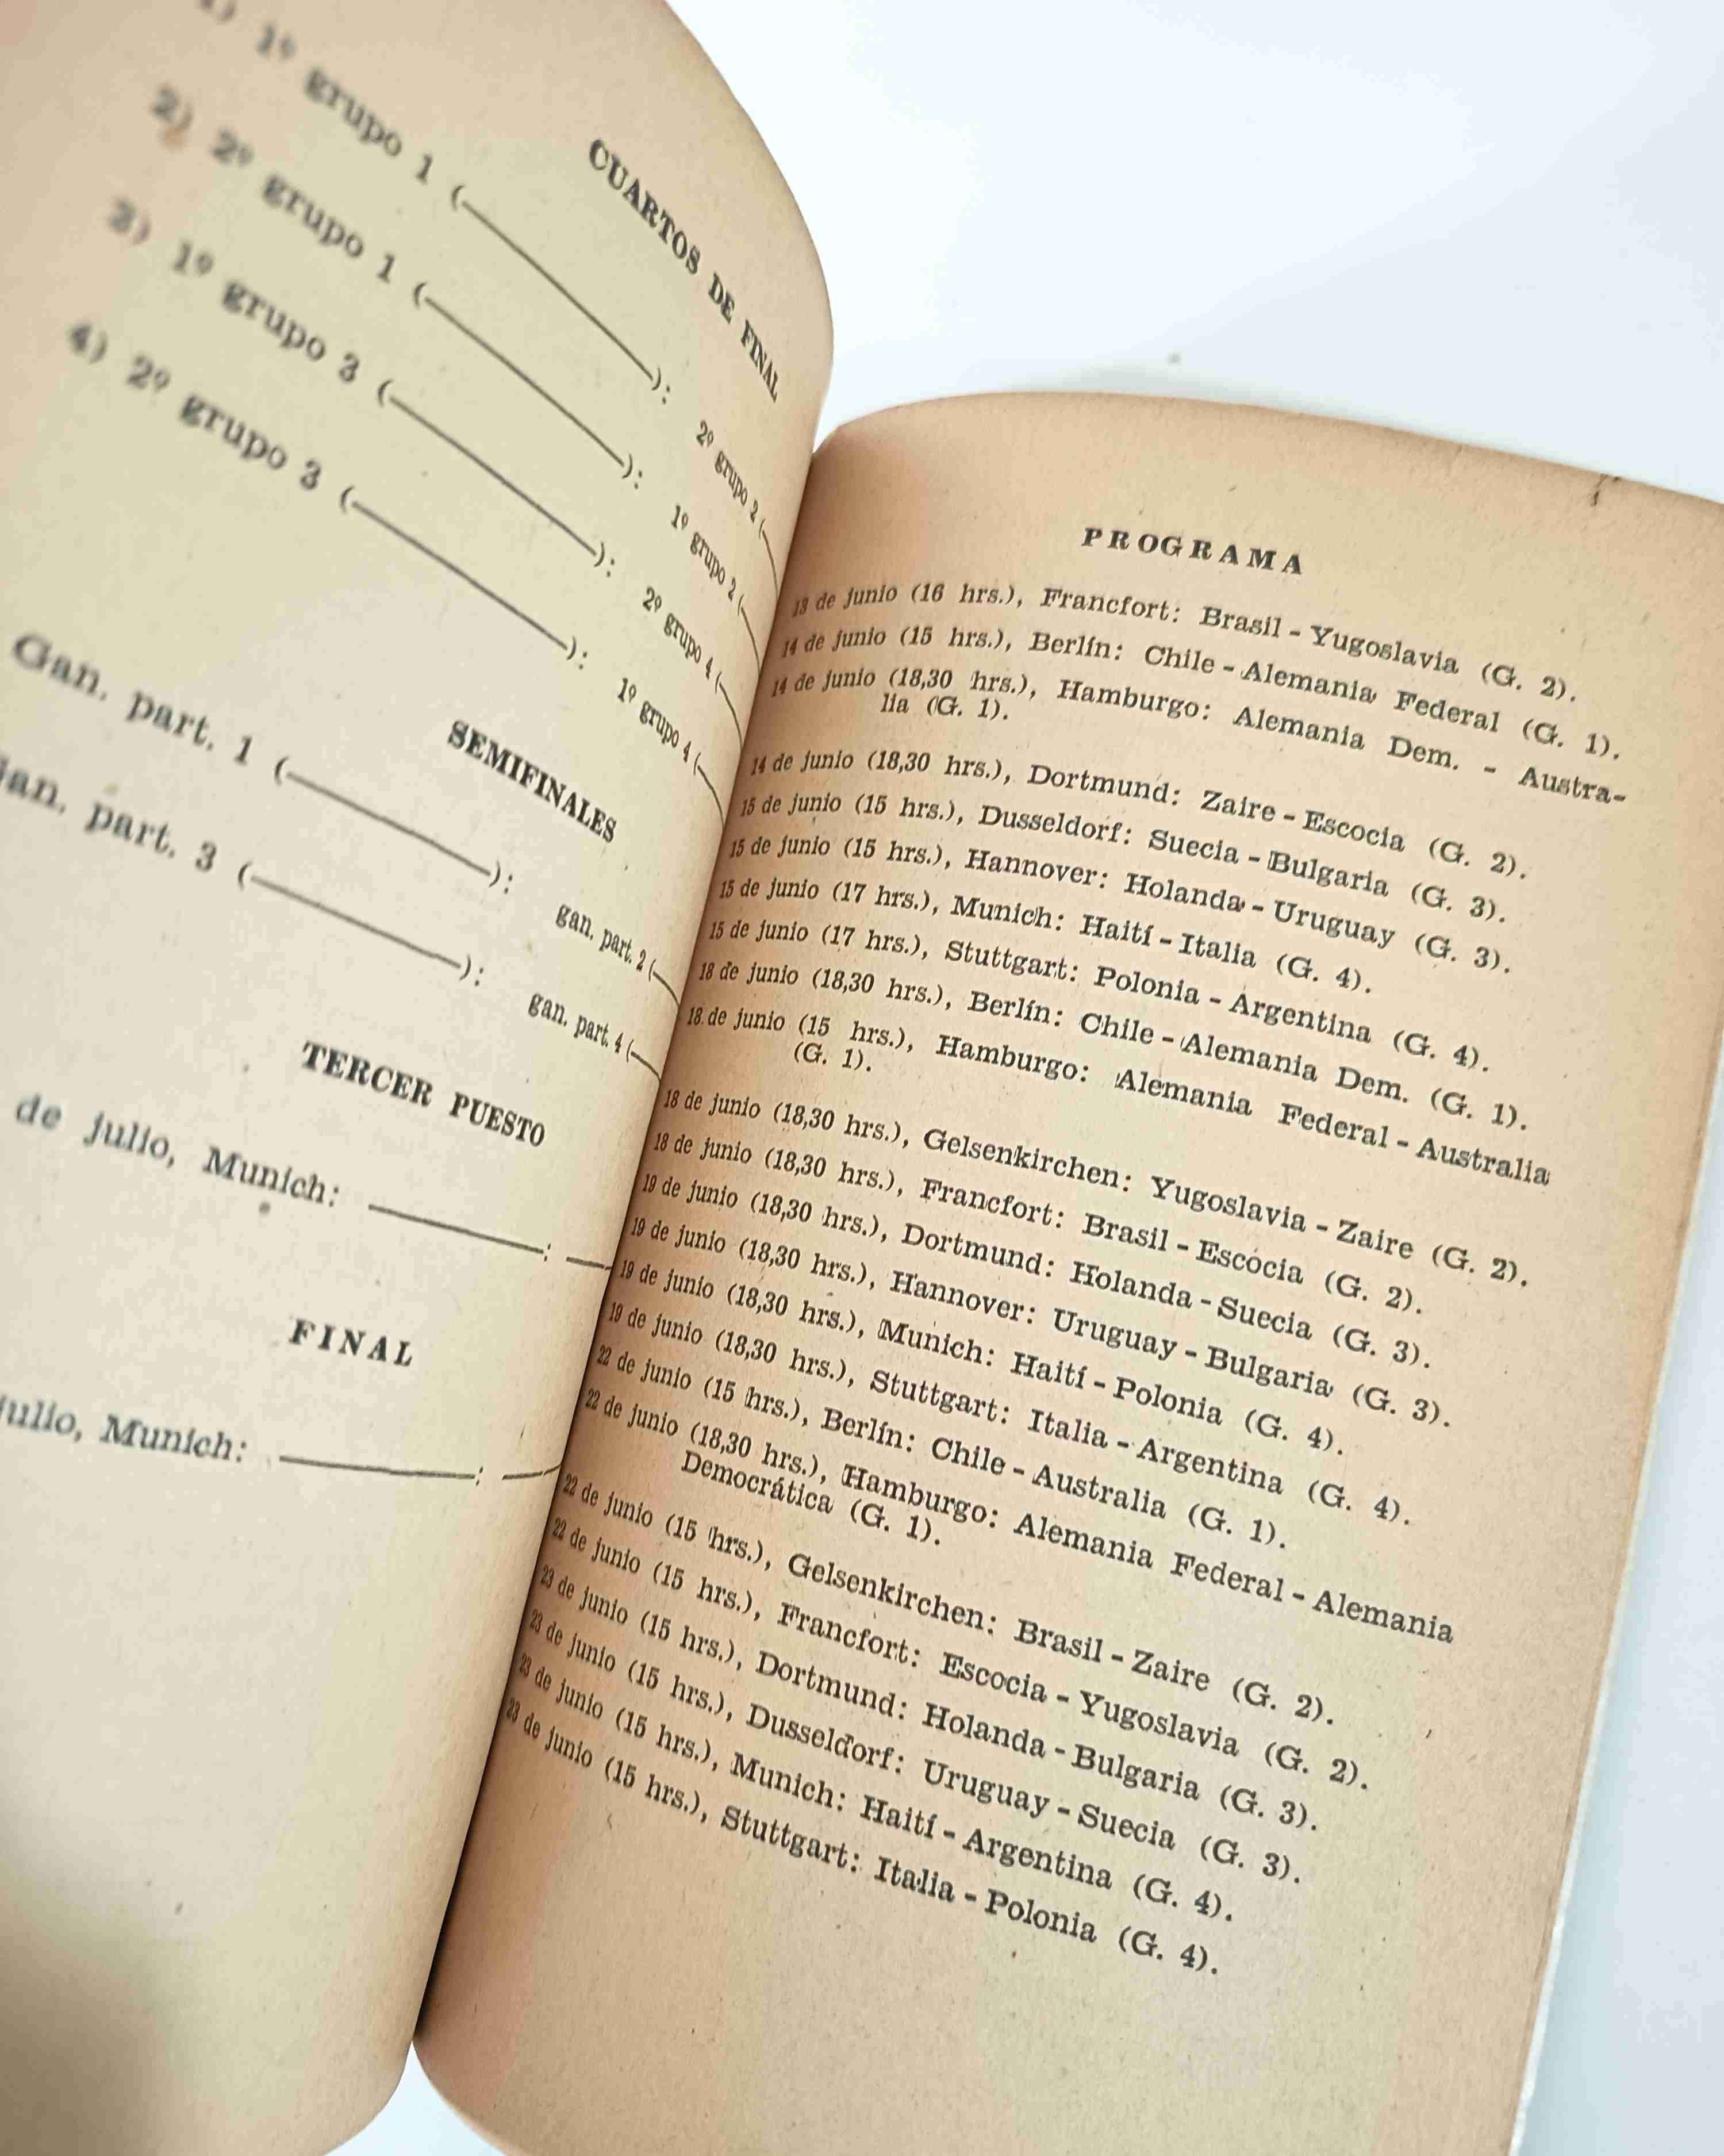 1) 1º grupo 1 (————): 2º grupo 2 (—
2) 2º grupo 1 (————): 1º grupo 2 (—
3) 1º grupo 3 (————): 2º grupo 4 (—
4) 2º grupo 3 (————): 1º grupo 4 (—
CUARTOS DE FINAL
SEMIFINALES
Gan. part. 1 (————): gan. part. 2 (—
Gan. part. 3 (————): gan. part. 4 (—
TERCER PUESTO
de julio, Munich: ————: —
FINAL
julio, Munich: ————: —
PROGRAMA
13 de junio (16 hrs.), Francfort: Brasil - Yugoslavia (G. 2).
14 de junio (15 hrs.), Berlín: Chile - Alemania Federal (G. 1).
14 de junio (18,30 hrs.), Hamburgo: Alemania Dem. - Austra-
lia (G. 1).
14 de junio (18,30 hrs.), Dortmund: Zaire - Escocia (G. 2).
15 de junio (15 hrs.), Dusseldorf: Suecia - Bulgaria (G. 3).
15 de junio (15 hrs.), Hannover: Holanda - Uruguay (G. 3).
15 de junio (17 hrs.), Munich: Haití - Italia (G. 4).
15 de junio (17 hrs.), Stuttgart: Polonia - Argentina (G. 4).
18 de junio (18,30 hrs.), Berlín: Chile - Alemania Dem. (G. 1).
18 de junio (15 hrs.), Hamburgo: Alemania Federal - Australia
(G. 1).
18 de junio (18,30 hrs.), Gelsenkirchen: Yugoslavia - Zaire (G. 2).
18 de junio (18,30 hrs.), Francfort: Brasil - Escocia (G. 2).
19 de junio (18,30 hrs.), Dortmund: Holanda - Suecia (G. 3).
19 de junio (18,30 hrs.), Hannover: Uruguay - Bulgaria (G. 3).
19 de junio (18,30 hrs.), Munich: Haití - Polonia (G. 4).
19 de junio (18,30 hrs.), Stuttgart: Italia - Argentina (G. 4).
22 de junio (15 hrs.), Berlín: Chile - Australia (G. 1).
22 de junio (18,30 hrs.), Hamburgo: Alemania Federal - Alemania
Democrática (G. 1).
22 de junio (15 hrs.), Gelsenkirchen: Brasil - Zaire (G. 2).
22 de junio (15 hrs.), Francfort: Escocia - Yugoslavia (G. 2).
23 de junio (15 hrs.), Dortmund: Holanda - Bulgaria (G. 3).
23 de junio (15 hrs.), Dusseldorf: Uruguay - Suecia (G. 3).
23 de junio (15 hrs.), Munich: Haití - Argentina (G. 4).
23 de junio (15 hrs.), Stuttgart: Italia - Polonia (G. 4).